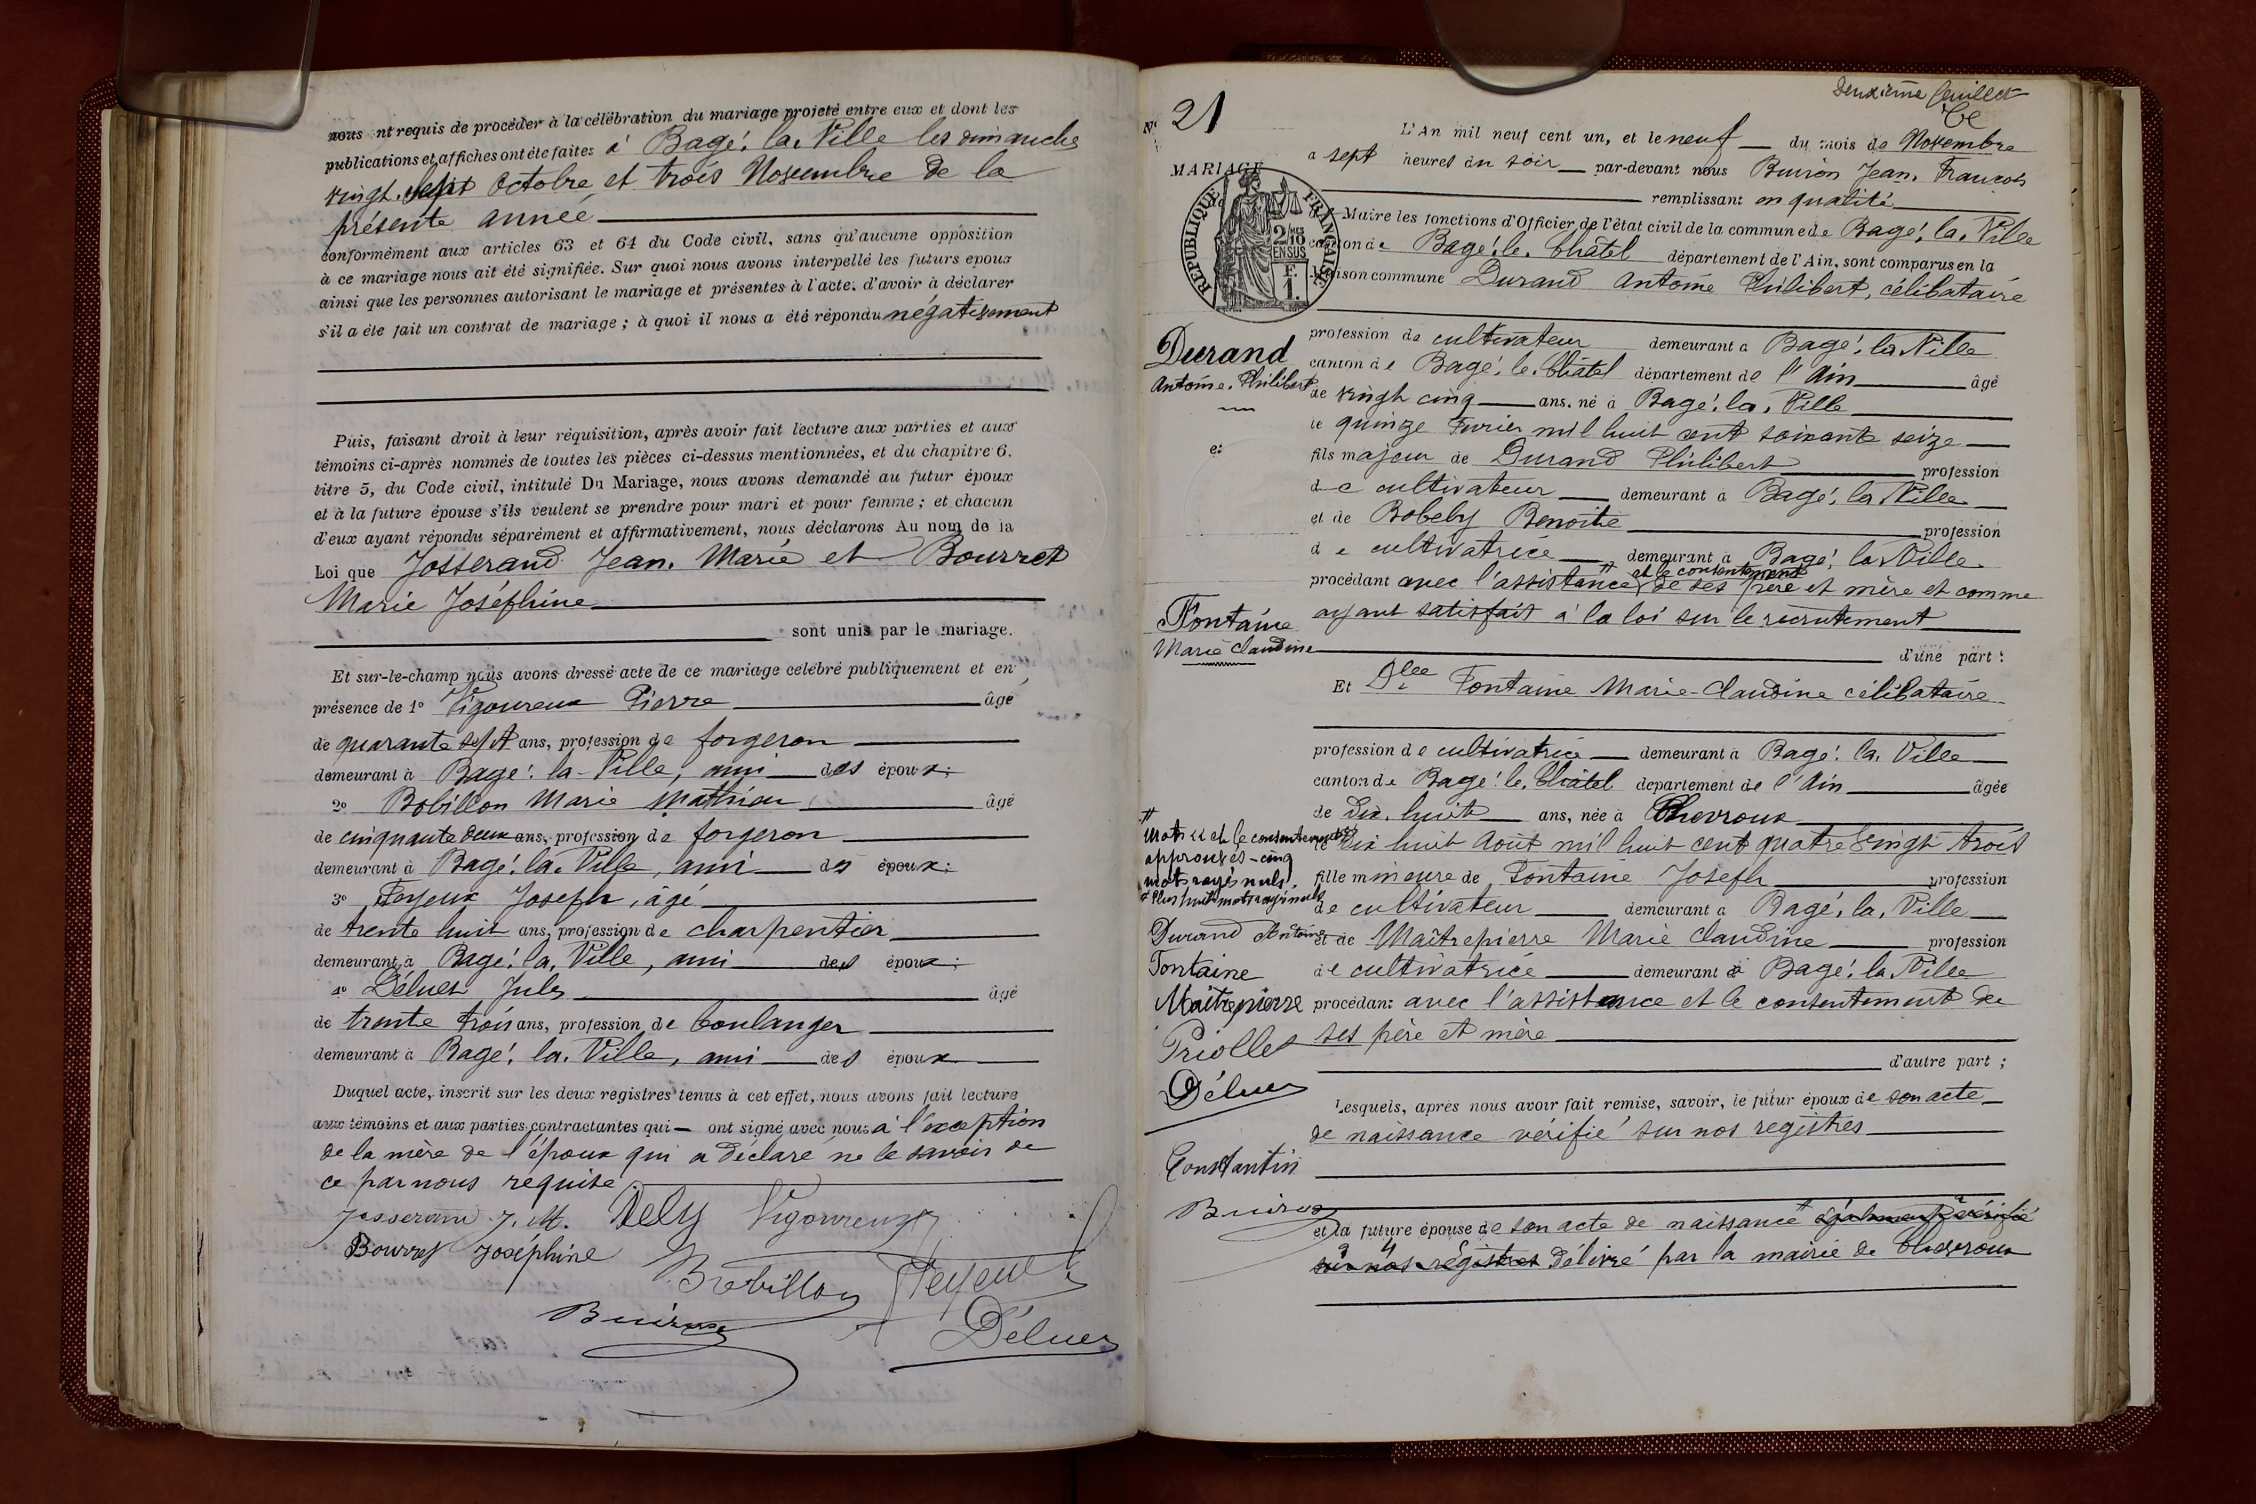 nous ont requis de procéder à la célébration du mariage projeté entre eux et dont les
publications et affiches ont été faites à Bagé-la-Ville les dimanche
vingt-sept Octobre et trois Novembre de la
présente année
conformément aux articles 63 et 64 du Code civil, sans qu'aucune opposition
à ce mariage nous ait été signifiée. Sur quoi nous avons interpellé les futurs époux
ainsi que les personnes autorisant le mariage et présentes à l'acte, d'avoir à déclarer
s'il a été fait un contrat de mariage ; à quoi il nous a été répondu négativement
Puis, faisant droit à leur réquisition, après avoir fait lecture aux parties et aux
témoins ci-après nommés de toutes les pièces ci-dessus mentionnées, et du chapitre 6,
titre 5, du Code civil, intitulé Du Mariage, nous avons demandé au futur époux
et à la future épouse s'ils veulent se prendre pour mari et pour femme ; et chacun
d'eux ayant répondu séparément et affirmativement, nous déclarons Au nom de la
Loi que Josserand Jean-Marie et Bourret
Marie Joséphine
sont unis par le mariage.
Et sur-le-champ nous avons dressé acte de ce mariage célébré publiquement et en
présence de 1º Vigoureux Pierre âgé
de quarante sept ans, profession de forgeron
demeurant à Bagé-la-Ville, ami des époux;
2º Bobillon Marie Mathieu âgé
de cinquante deux ans, profession de forgeron
demeurant à Bagé-la-Ville, ami des époux;
3º Feyeux Joseph, âgé
de trente huit ans, profession de charpentier
demeurant à Bagé-la-Ville, ami des époux;
4º Déluer Jules âgé
de trente trois ans, profession de boulanger
demeurant à Bagé-la-Ville, ami des époux
Duquel acte, inscrit sur les deux registres tenus à cet effet, nous avons fait lecture
aux témoins et aux parties contractantes qui ont signé avec nous à l'exception
de la mère de l'époux qui a déclaré ne le savoir de
ce par nous requise
Josserand J. M. Dely Vigoureux
Bourret Joséphine Bobillon Feyeux
Buiron Déluer
Deuxième feuillet
Nº 21
MARIAGE
RÉPUBLIQUE FRANÇAISE
2/10 EN SUS
F. 1.
L'An mil neuf cent un, et le neuf du mois de Novembre
à sept heures du soir par-devant nous Buiron Jean-François
remplissant en qualité
de Maire les fonctions d'Officier de l'état civil de la commune de Bagé-la-Ville
canton de Bagé-le-Châtel département de l'Ain, sont comparus en la
Maison commune Durand Antoine Philibert, célibataire
Durand
Antoine-Philibert
et
profession de cultivateur demeurant à Bagé-la-Ville
canton de Bagé-le-Châtel département de l'Ain âgé
de vingt cinq ans, né à Bagé-la-Ville
le quinze Février mil huit cent soixante seize
fils majeur de Durand Philibert profession
de cultivateur demeurant à Bagé-la-Ville
et de Bobeby Benoîte profession
de cultivatrice demeurant à Bagé-la-Ville
et le consentement
procédant avec l'assistance # de ses père et mère et comme
ayant satisfait à la loi sur le recrutement
Fontaine
Marie Claudine
d'une part :
Et Dlle Fontaine Marie-Claudine célibataire
profession de cultivatrice demeurant à Bagé-la-Ville
canton de Bagé-le-Châtel département de l'Ain âgée
de dix-huit ans, née à Chevroux
le dix huit Août mil huit cent quatre vingt trois
fille mineure de Fontaine Joseph profession
de cultivateur demeurant à Bagé-la-Ville
et de Maîtrepierre Marie Claudine profession
de cultivatrice demeurant à Bagé-la-Ville
procédant avec l'assistance et le consentement de
ses père et mère
d'autre part ;
# mots << et le consentement >>
approuvés - cinq
mots rayés nuls.
# Plus huit mots rayés nuls
Durand Antoine
Fontaine
Maîtrepierre
Priollet
Déluer
Constantin
Buiron
Lesquels, après nous avoir fait remise, savoir, le futur époux de son acte
de naissance vérifié sur nos registres
et la future épouse de son acte de naissance également vérifié
sur nos registres délivré par la mairie de Chevroux